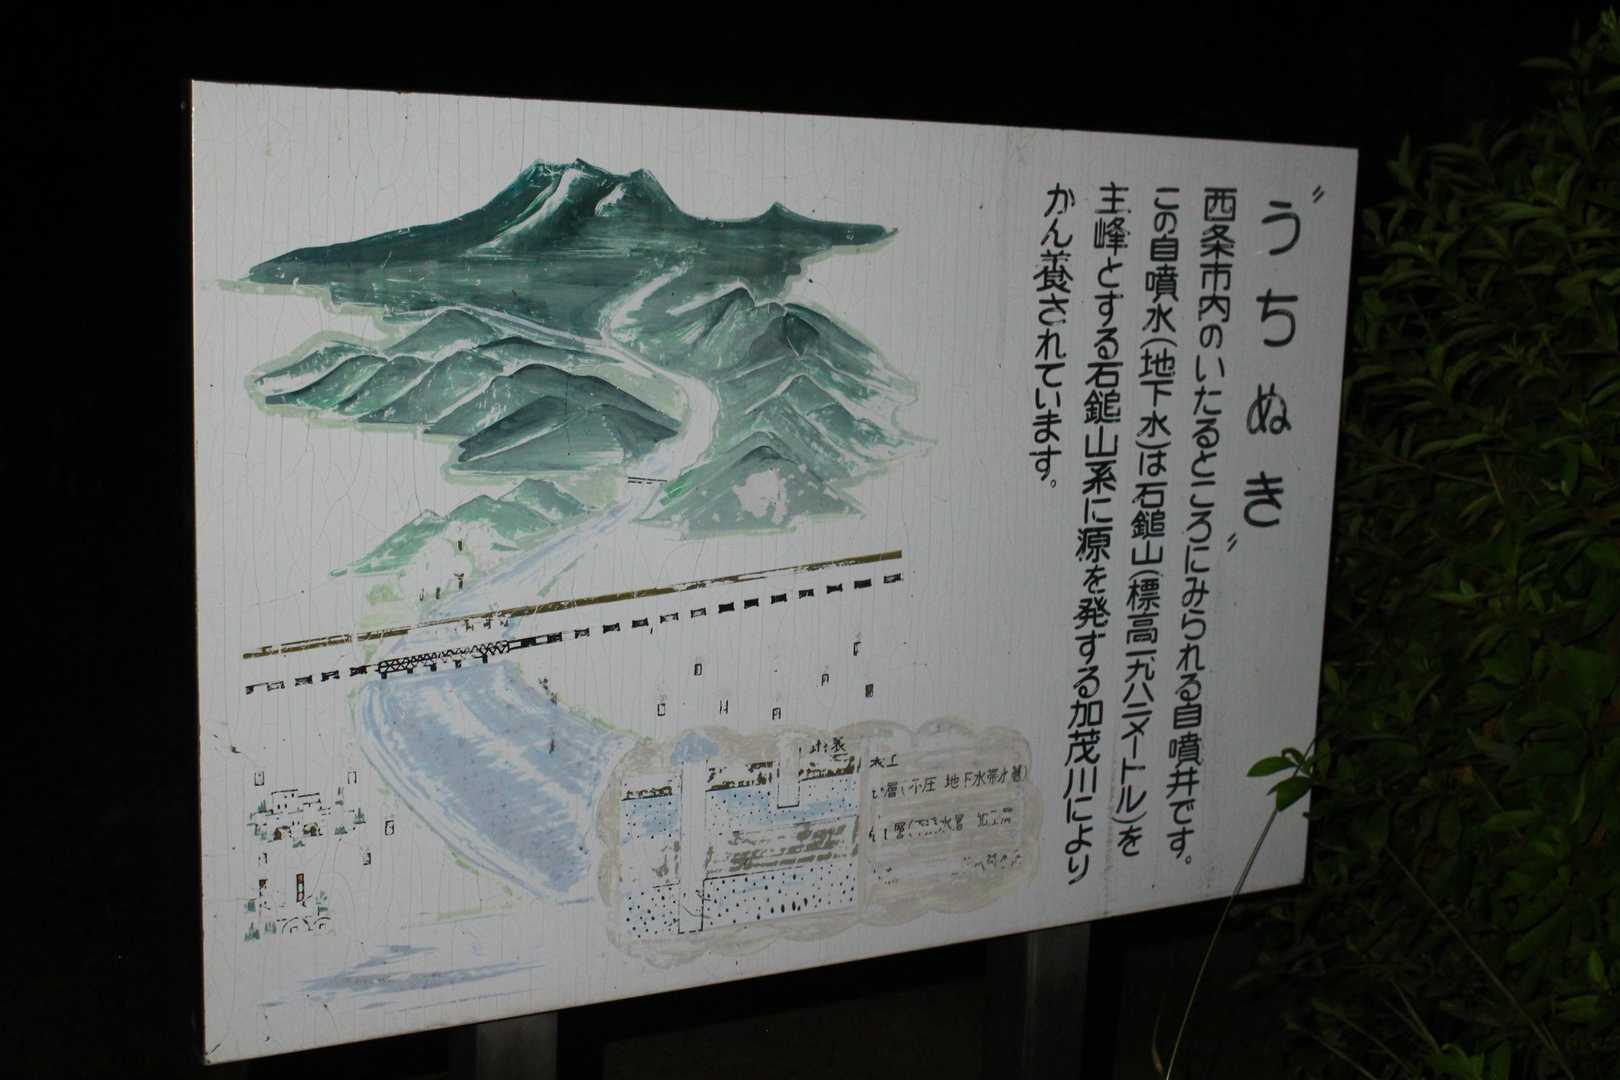 〝うちぬき〟
西条市内のいたるところにみられる自噴井です。
この自噴水(地下水)は石鎚山(標高一九八二メートル)を
主峰とする石鎚山系に源を発する加茂川により
かん養されています。
地下水帯水層)